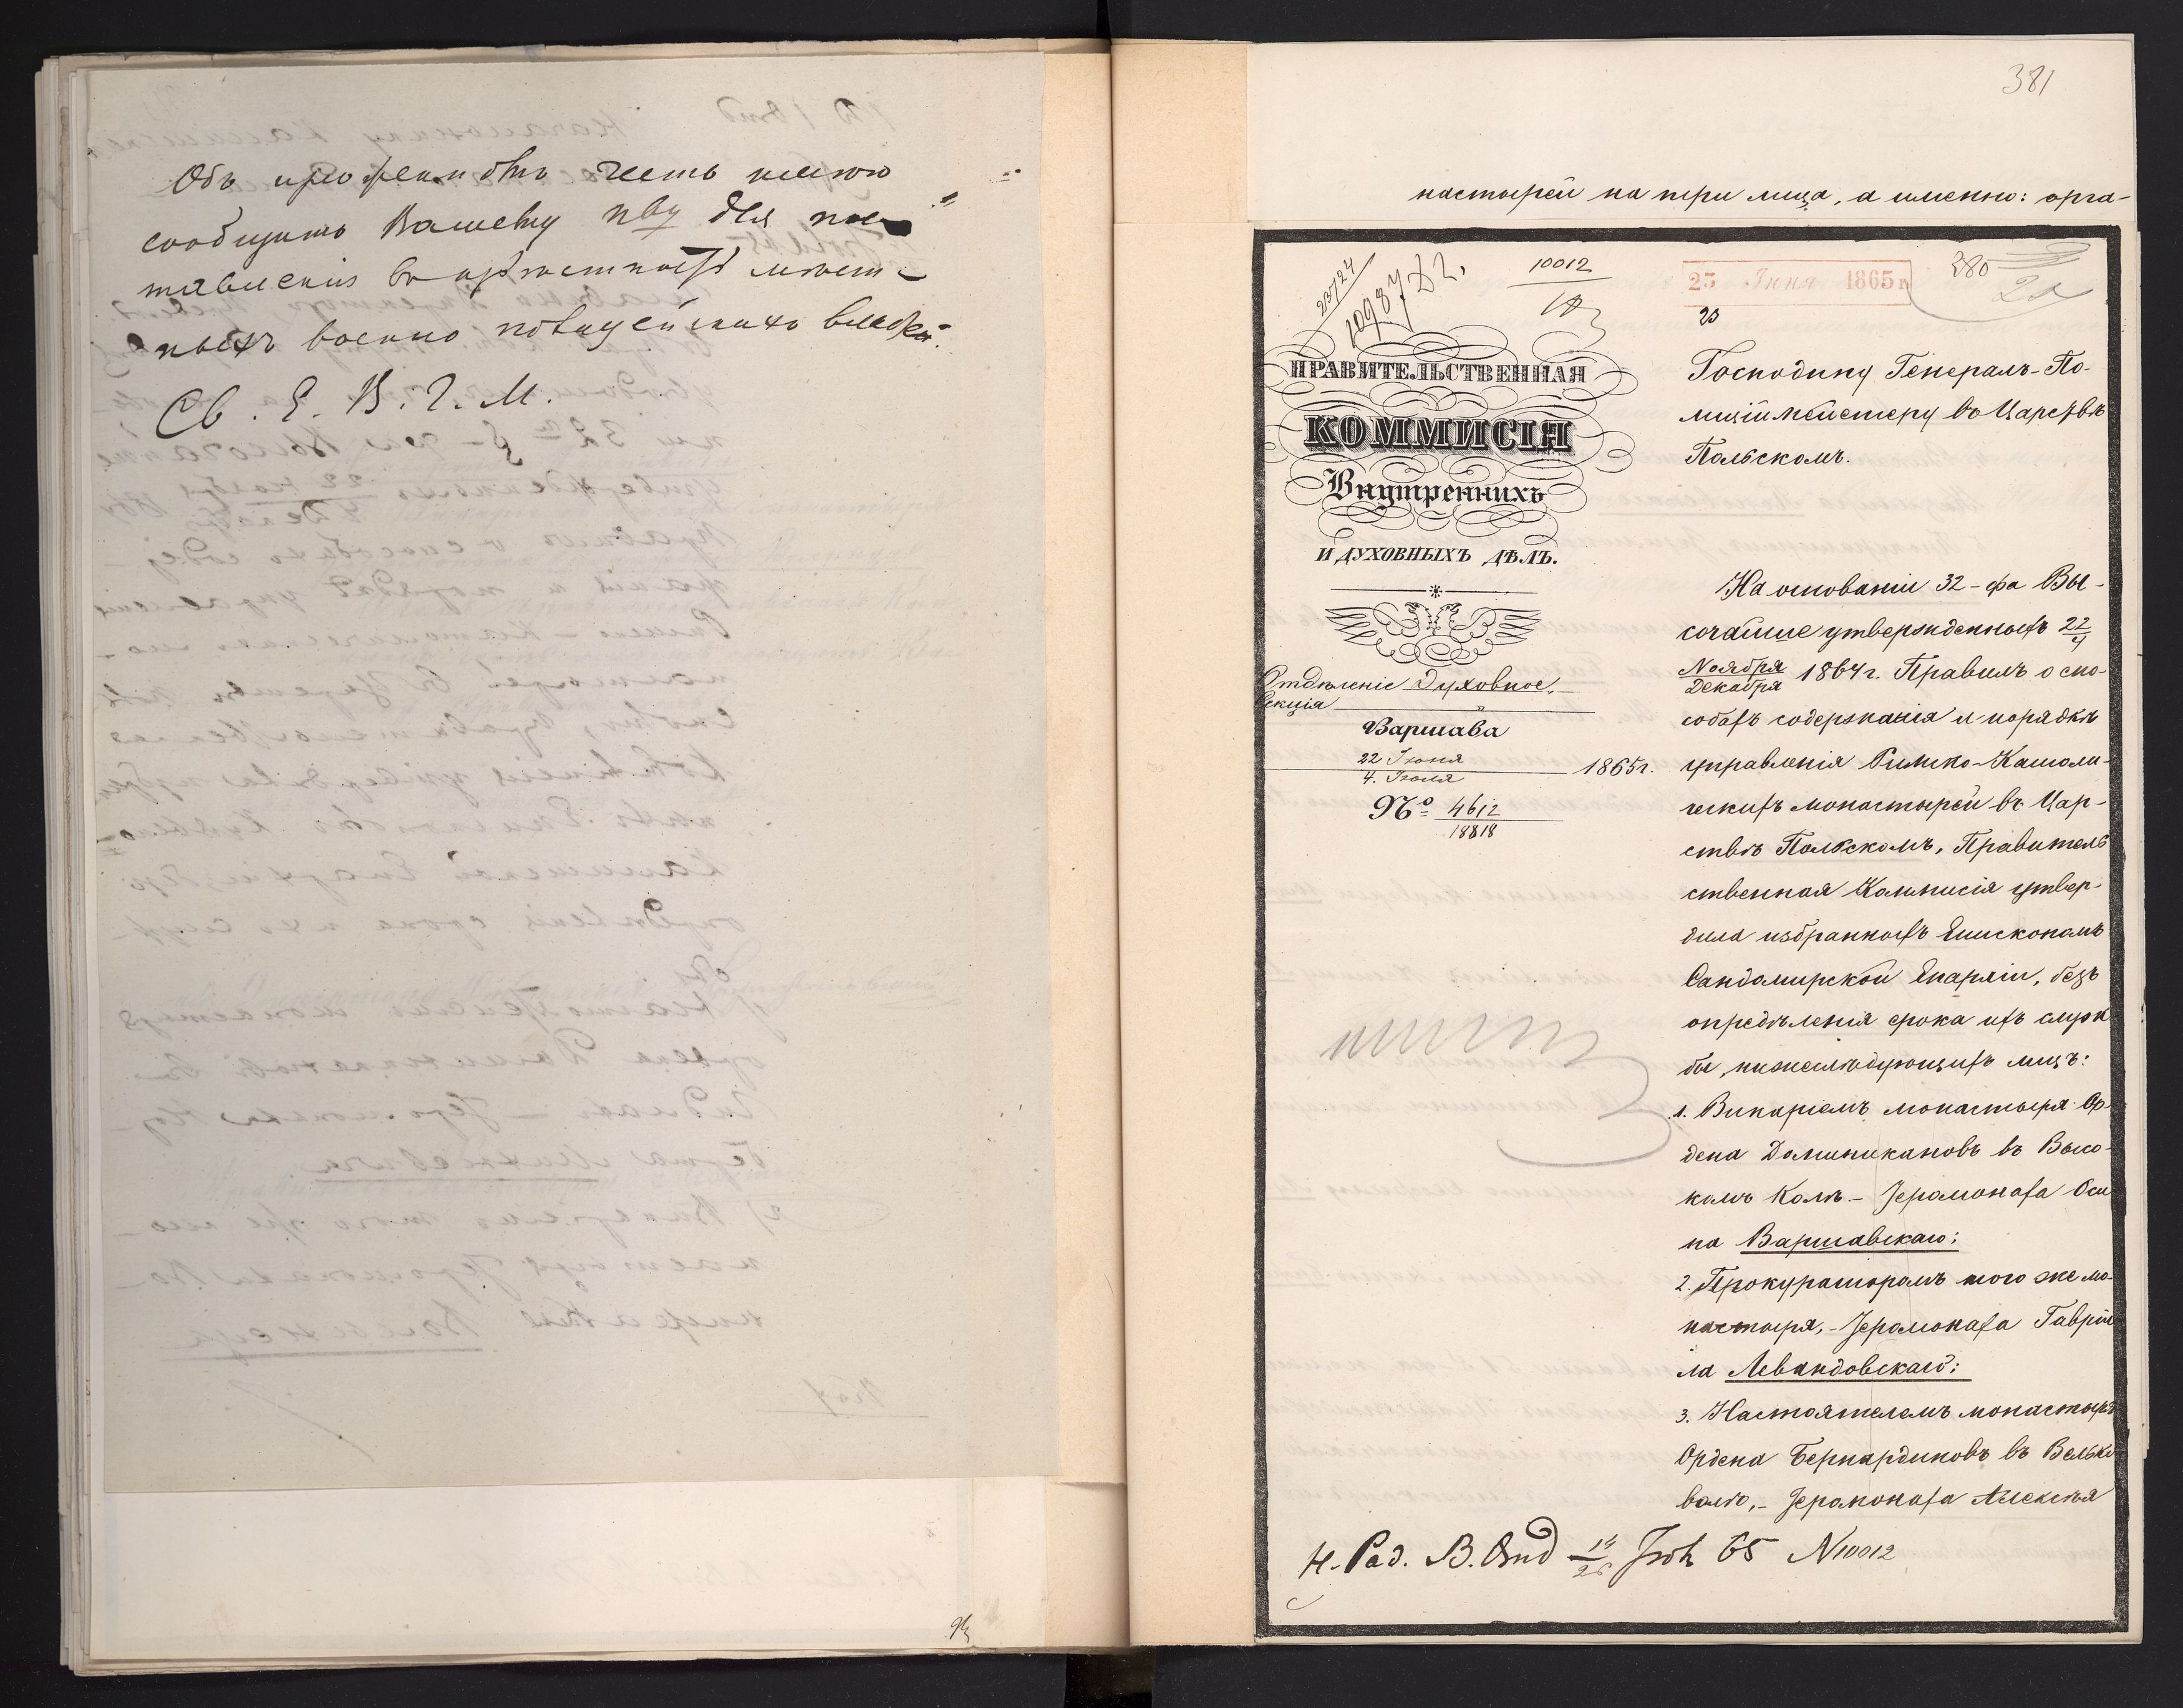 Объ утвержденіи честь имѣю
сообщить Вашему пву для
ставленія въ извѣстность мѣст-
ныхъ военно полицейскихъ властей.
Св. Е. В. Г. М.
381
настырей на три лица, а именно: орга-
23724
20987/Д2.
10012
23 Іюня 1865 г.
380
23
ПРАВИТЕЛЬСТВЕННАЯ
КОММИСІЯ
Внутреннихъ
И ДУХОВНЫХЪ ДѢЛЪ.
Отдѣленіе Духовное.
Секція
Варшава
22 Іюня
4. Іюля
1865 г.
№ 4612
18818
Господину Генералъ-По-
лиціймейстеру въ Царствѣ
Польскомъ.
На основаніи 32-фа Вы-
сочайше утвержденныхъ 22/4
Ноября/Декабря 1864 г. Правилъ о спо-
собахъ содержанія и порядкѣ
управленія Римско-Католи-
ческихъ монастырей въ Цар-
ствѣ Польскомъ, Правитель
ственная Коммисія утвер-
дила избранныхъ Епископомъ
Сандомирской Епархіи, безъ
опредѣленія срока ихъ служ
бы, нижеслѣдующихъ лицъ:
1. Викаріемъ монастыря Ор-
дена Доминикановъ въ Высо-
комъ Колѣ.- Іеромонаха Оси
па Варшавскаго;
2. Прокураторомъ того же мо-
настыря,- Іеромонаха Гаврі
ила Левандовскаго;
3. Настоятелемъ монастыря
Ордена Бернардиновъ въ Велько
волѣ,- Іеромонаха Алексѣя
Н. Рад. В. Отд 14/26 Іюл 65 N 10012